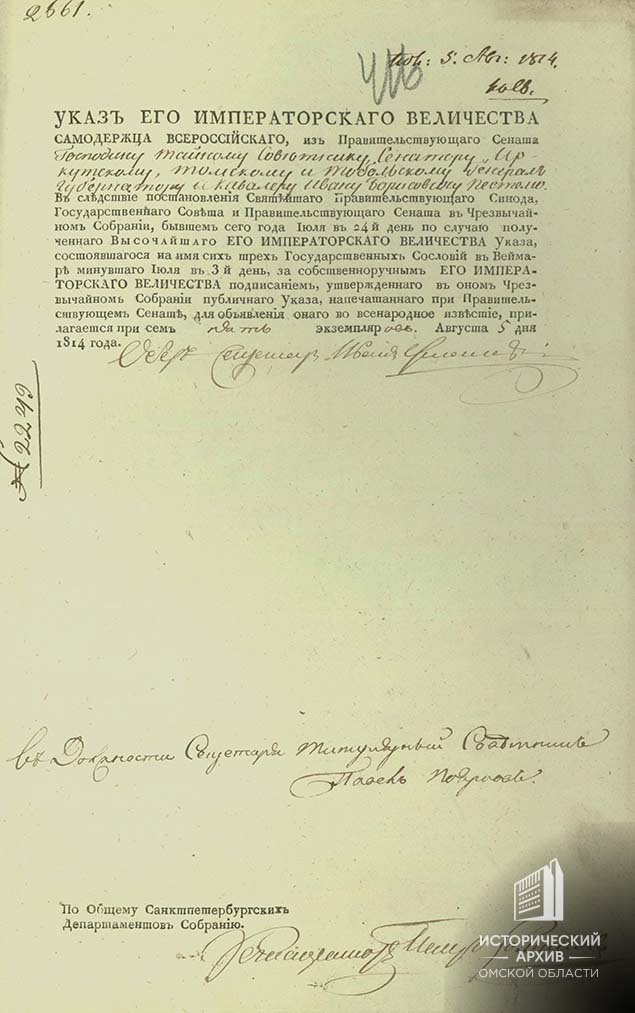 2661.
5. Авг: 1814.
УКАЗЪ ЕГО ИМПЕРАТОРСКАГО ВЕЛИЧЕСТВА
САМОДЕРЖЦА ВСЕРОССІЙСКАГО, изъ Правительствующаго Сената
Господину Тайному Совѣтнику, Сенатору, Ир-
кутскому, Томскому и Тобольскому Генералъ
Губернатору и Кавалеру Ивану Борисовичу Пестелю.
Въ слѣдствіе постановленія Святѣйшаго Правительствующаго Синода,
Государственнаго Совѣта и Правительствующаго Сената въ Чрезвычай-
номъ Собраніи, бывшемъ сего года Іюля въ 24 й день по случаю полу-
ченнаго ВЫСОЧАЙШАГО ЕГО ИМПЕРАТОРСКАГО ВЕЛИЧЕСТВА Указа,
состоявшагося на имя сихъ трехъ Государственныхъ Сословій въ Вейма-
рѣ минувшаго Іюля въ 3 й день, за собственноручнымъ ЕГО ИМПЕРА-
ТОРСКАГО ВЕЛИЧЕСТВА подписаніемъ, утвержденнаго въ ономъ Чрез-
вычайномъ Собраніи публичнаго Указа, напечатаннаго при Правитель-
ствующемъ Сенатѣ, для объявленія онаго во всенародное извѣстіе, при-
лагается при семъ пять экземпляровъ. Августа 5 дня
1814 года.
Оберъ Секретарь Иванъ
№ 2249
Въ Должности Секретаря Титулярный Совѣтникъ
Павелъ
По Общему Санктпетербургскихъ
Департаментовъ Собранію.
Регистраторъ
ИСТОРИЧЕСКИЙ
АРХИВ
ОМСКОЙ ОБЛАСТИ